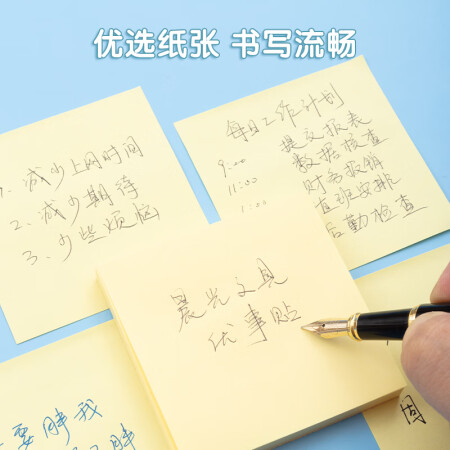 优选纸张 书写流畅
1、减少上网时间
2、减少期待
3、少些烦恼
每日工作计划
9:00 提交报表
11:00 数据核查
1:00 财务报销
值班安排
后勤检查
晨光文具
优事贴
要胖我
胖
周